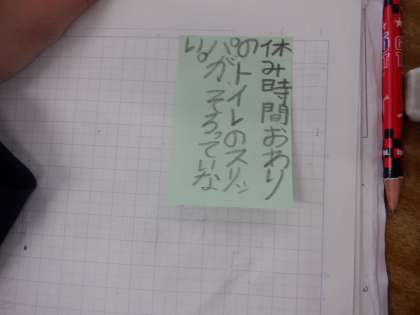 休み時間おわり
のトイレのスリッ
パが、そろっていな
い。